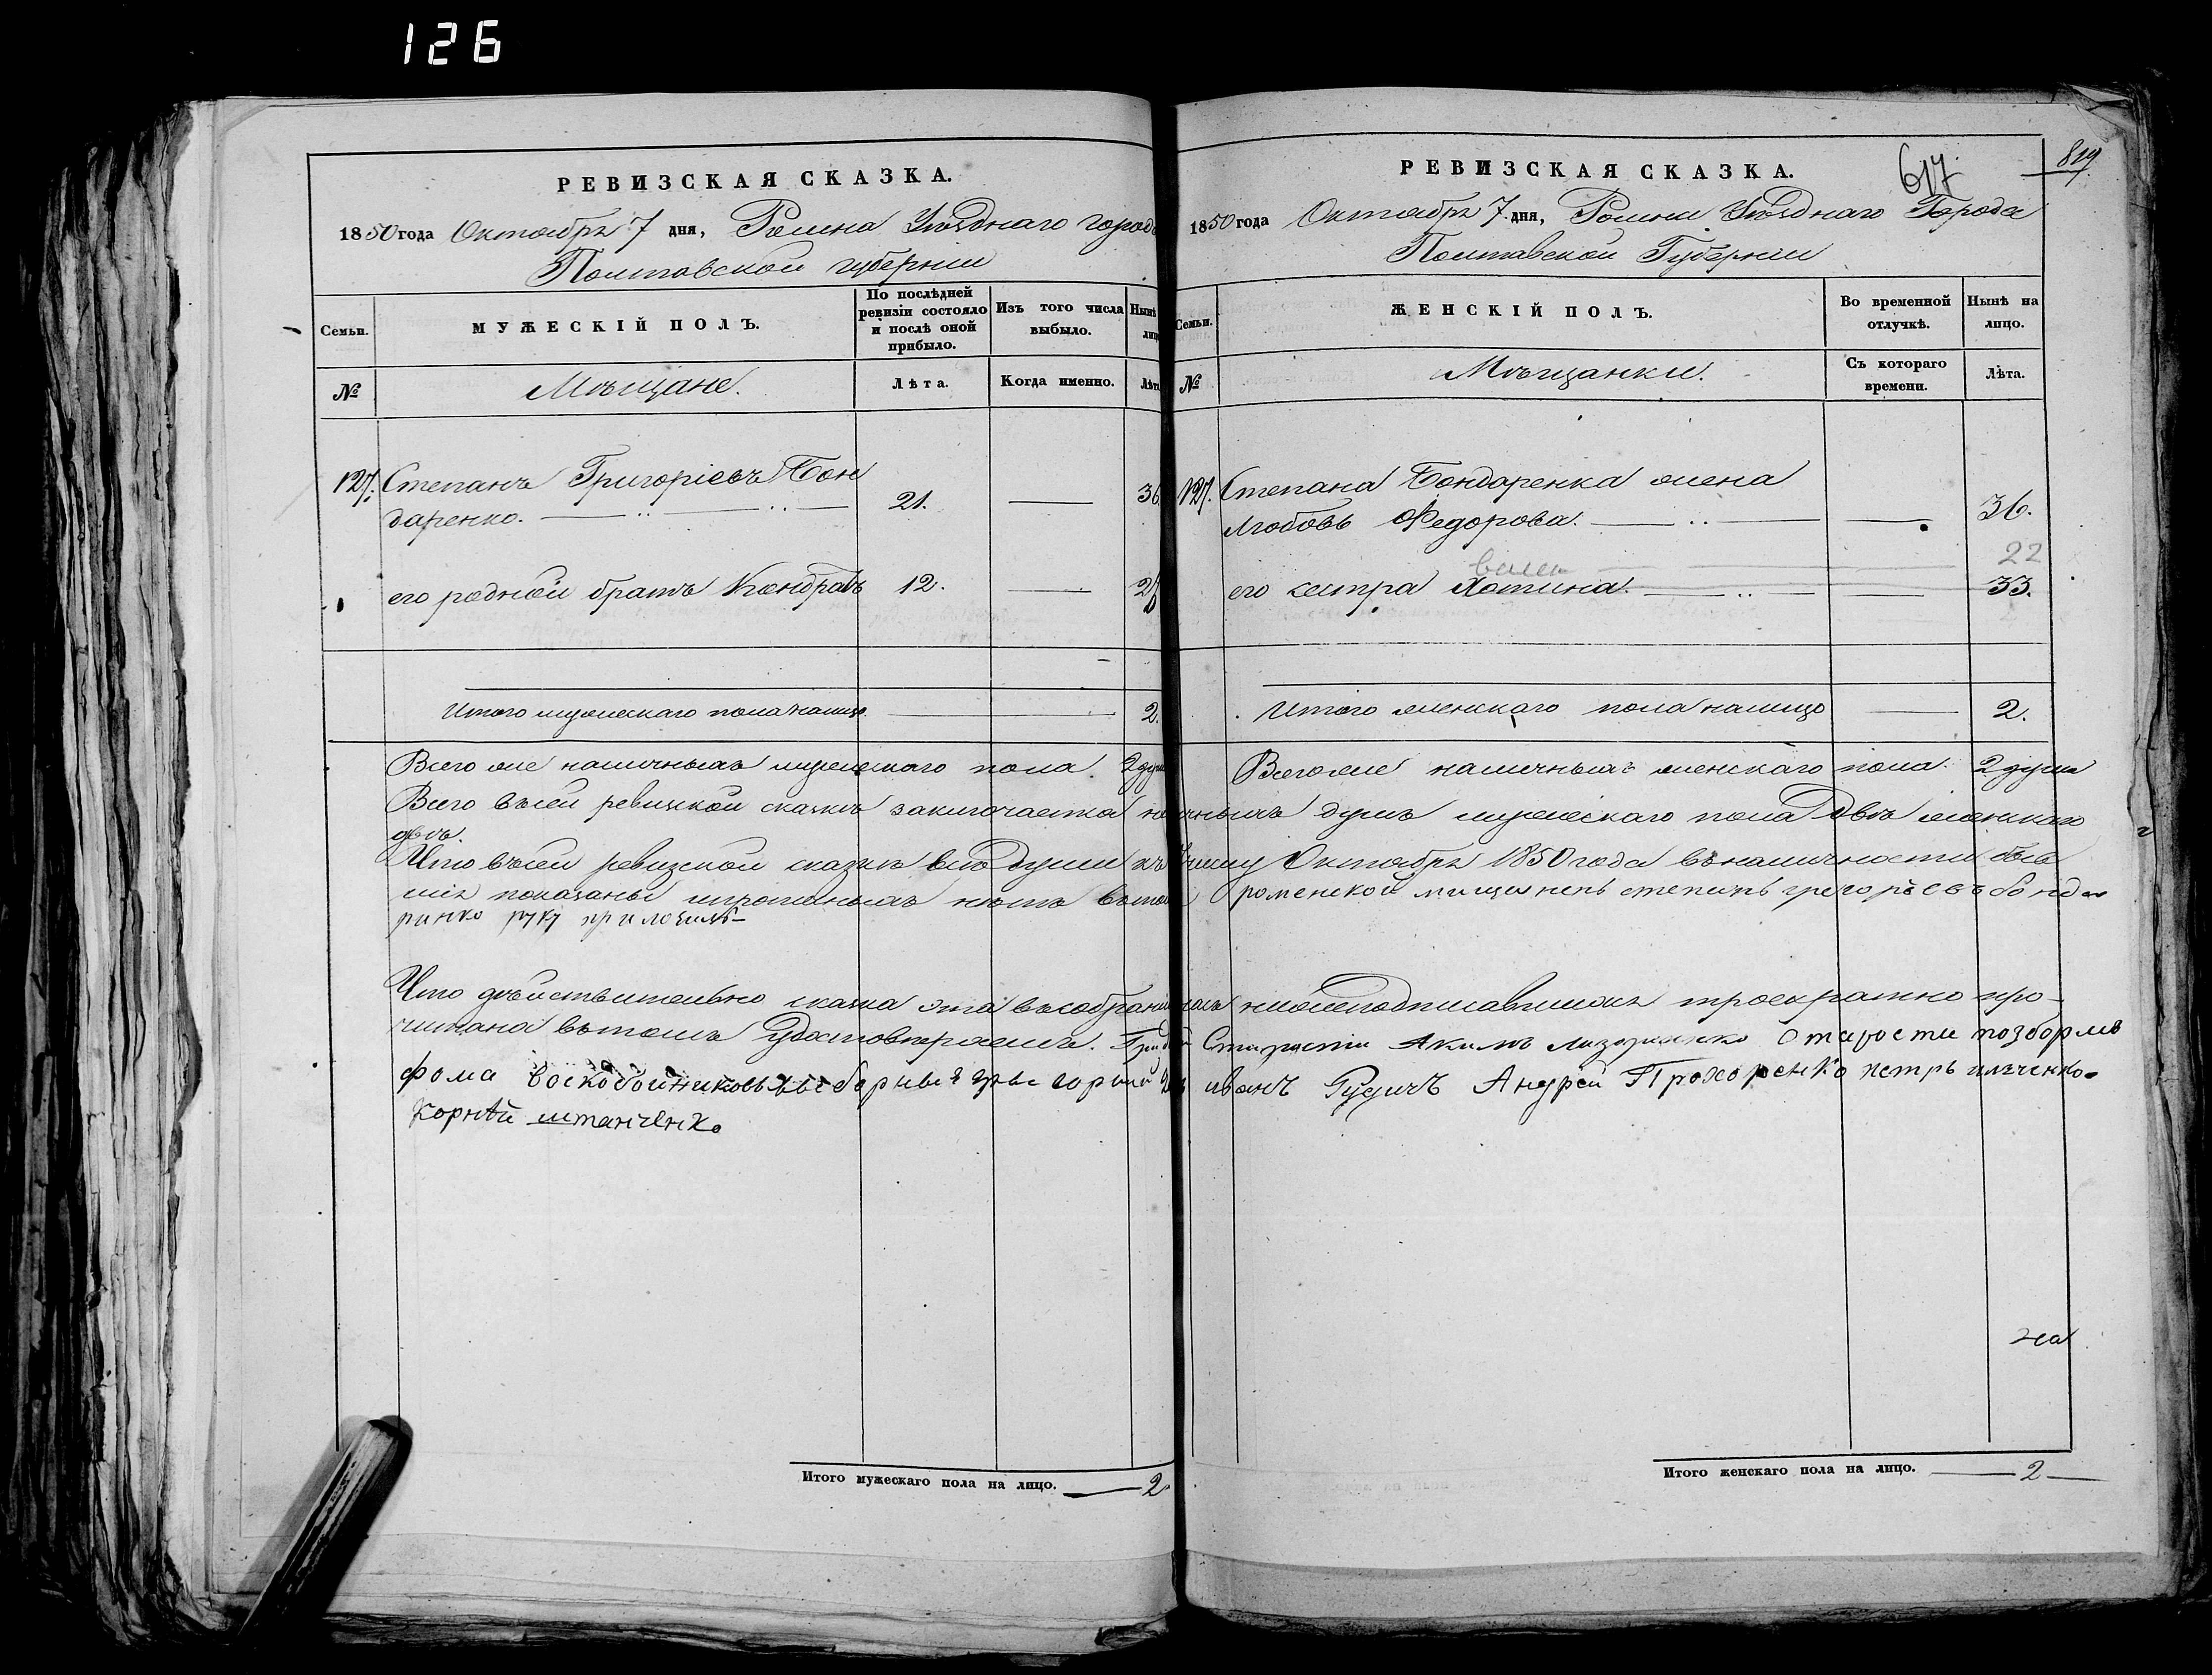 126
РЕВИЗСКАЯ СКАЗКА.
1850 года Октября 7 дня, Ромна Уѣзднаго города
Полтавской губернии
Семьи.
МУЖЕСКІЙ ПОЛЪ.
По послѣдней ревизіи состояло и послѣ оной прибыло.
Изъ того числа выбыло.
Нынѣ
№
Мѣщане.
Лѣта.
Когда именно.
Лѣта
127. Степанъ Григоріевъ Бон
даренко. 21. 36
его родной братъ Кондратъ 12. 27
Итого мужескаго пола налицо 2.
Всего же наличныхъ мужескаго пола 2 душ
РЕВИЗСКАЯ СКАЗКА.
617.
819
1850 года Октября 7 дня, Ромни Уѣзднаго Города
Полтавской Губернии
Семьи.
ЖЕНСКІЙ ПОЛЪ.
Во временной отлучкѣ.
Нынѣ на лицо.
№
Мѣщанки.
Съ котораго времени.
Лѣта.
127. Степана Бондаренка жена
Любовь Федорова. 36.
22
его сестра Хотина. 33.
Итого женскаго пола налицо 2.
Всего же наличныхъ женскаго пола 2 души
Всего въ сей ревизской сказкѣ заключается наличныхъ душъ мужескаго пола двѣ женскаго
двѣ.
Что въ сей ревизской сказкѣ всѣ души къ числу Октября 1850 года въ наличности быв
шія показаны и прописныхъ нѣтъ въ томъ роменской мищененъ степинъ грегорьевъ бонда
ринко руку приложилъ
Что дѣйствительно сказка эта въ собраніи нижеподписавшихся троекратно про-
читана въ томъ удостовѣряемъ. Старости
фома воскобойниковъ иванъ Рудичъ Андрей Прохоренко петръ
Корнѣй штанченко
Итого мужескаго пола на лицо. 2
Итого женскаго пола на лицо. 2